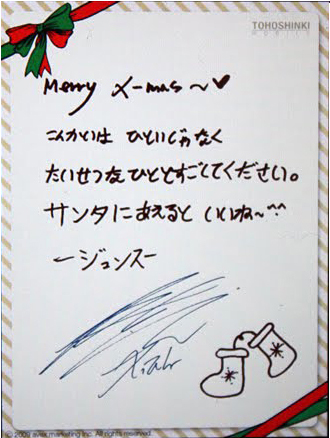 TOHOSHINKI
MOBILE
Merry X-mas ~♥
こんかいは ひとりじゃなく
たいせつなひととすごしてください。
サンタにあえると いいね~^^
-ジュンス-
Xiah
© 2009 avex marketing Inc. All rights reserved.